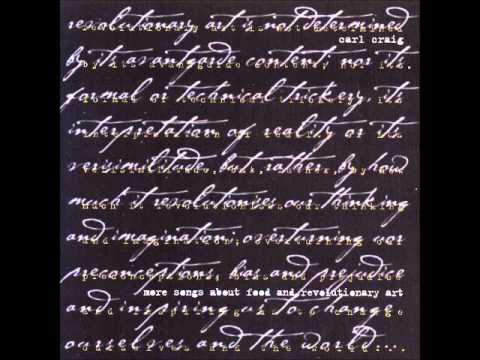 revolutionary art is not determined
carl craig
by its avantgarde content nor its
formal or technical trickery, its
interpretation of reality or its
verisimilitude, but, rather, by how
much it revolutionises our thinking
and imagination; overturning our
preconceptions, bias and prejudice
more songs about food and revolutionary art
and inspiring us to change
ourselves and the world....